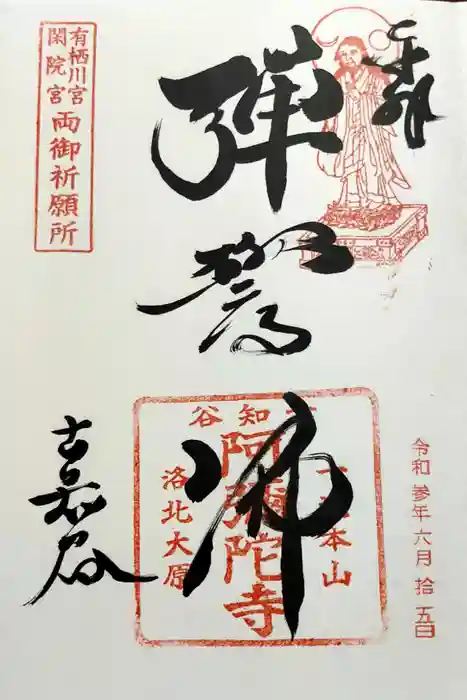 奉拝
彈誓佛
古知谷
有栖川宮
閑院宮
両御祈願所
知谷
本山
阿彌陀寺
洛北大原
令和参年六月拾五日